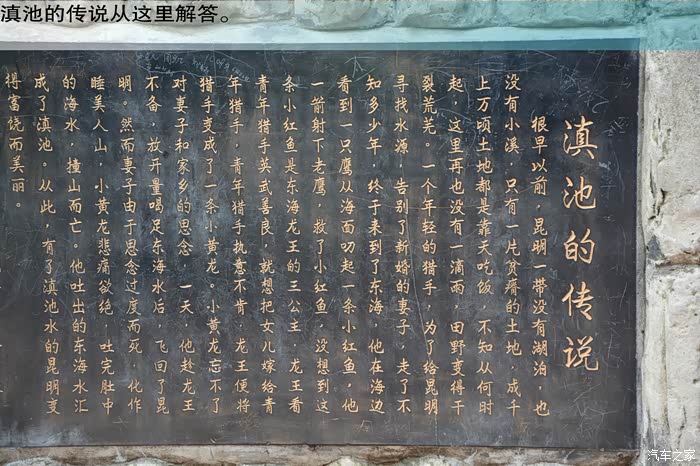 滇池的传说从这里解答。
滇池的传说
很早以前，昆明一带没有湖泊，也
没有小溪，只有一片贫瘠的土地，成千
上万顷土地都是靠天吃饭，不知从何时
起，这里再也没有一滴雨，田野变得干
裂荒芜。一个年轻的猎手，为了给昆明
寻找水源，告别了新婚的妻子，走了不
知多少年，终于来到了东海。他在海边
看到一只鹰从海面叨起一条小红鱼，他
一箭射下老鹰，救了小红鱼，没想到这
条小红鱼是东海龙王的三公主，龙王看
青年猎手英武善良，就想把女儿嫁给青
年猎手，青年猎手执意不肯，龙王便将
猎手变成了一条小黄龙。小黄龙忘不了
对妻子和家乡的思念，一天，他趁龙王
不备，放开量喝足东海水后，飞回了昆
明。然而妻子由于思念过度而死，化作
睡美人山，小黄龙悲痛欲绝，吐完肚中
的海水，撞山而亡。他吐出的东海水汇
成了滇池。从此，有了滇池水的昆明变
得富饶而美丽。
汽车之家